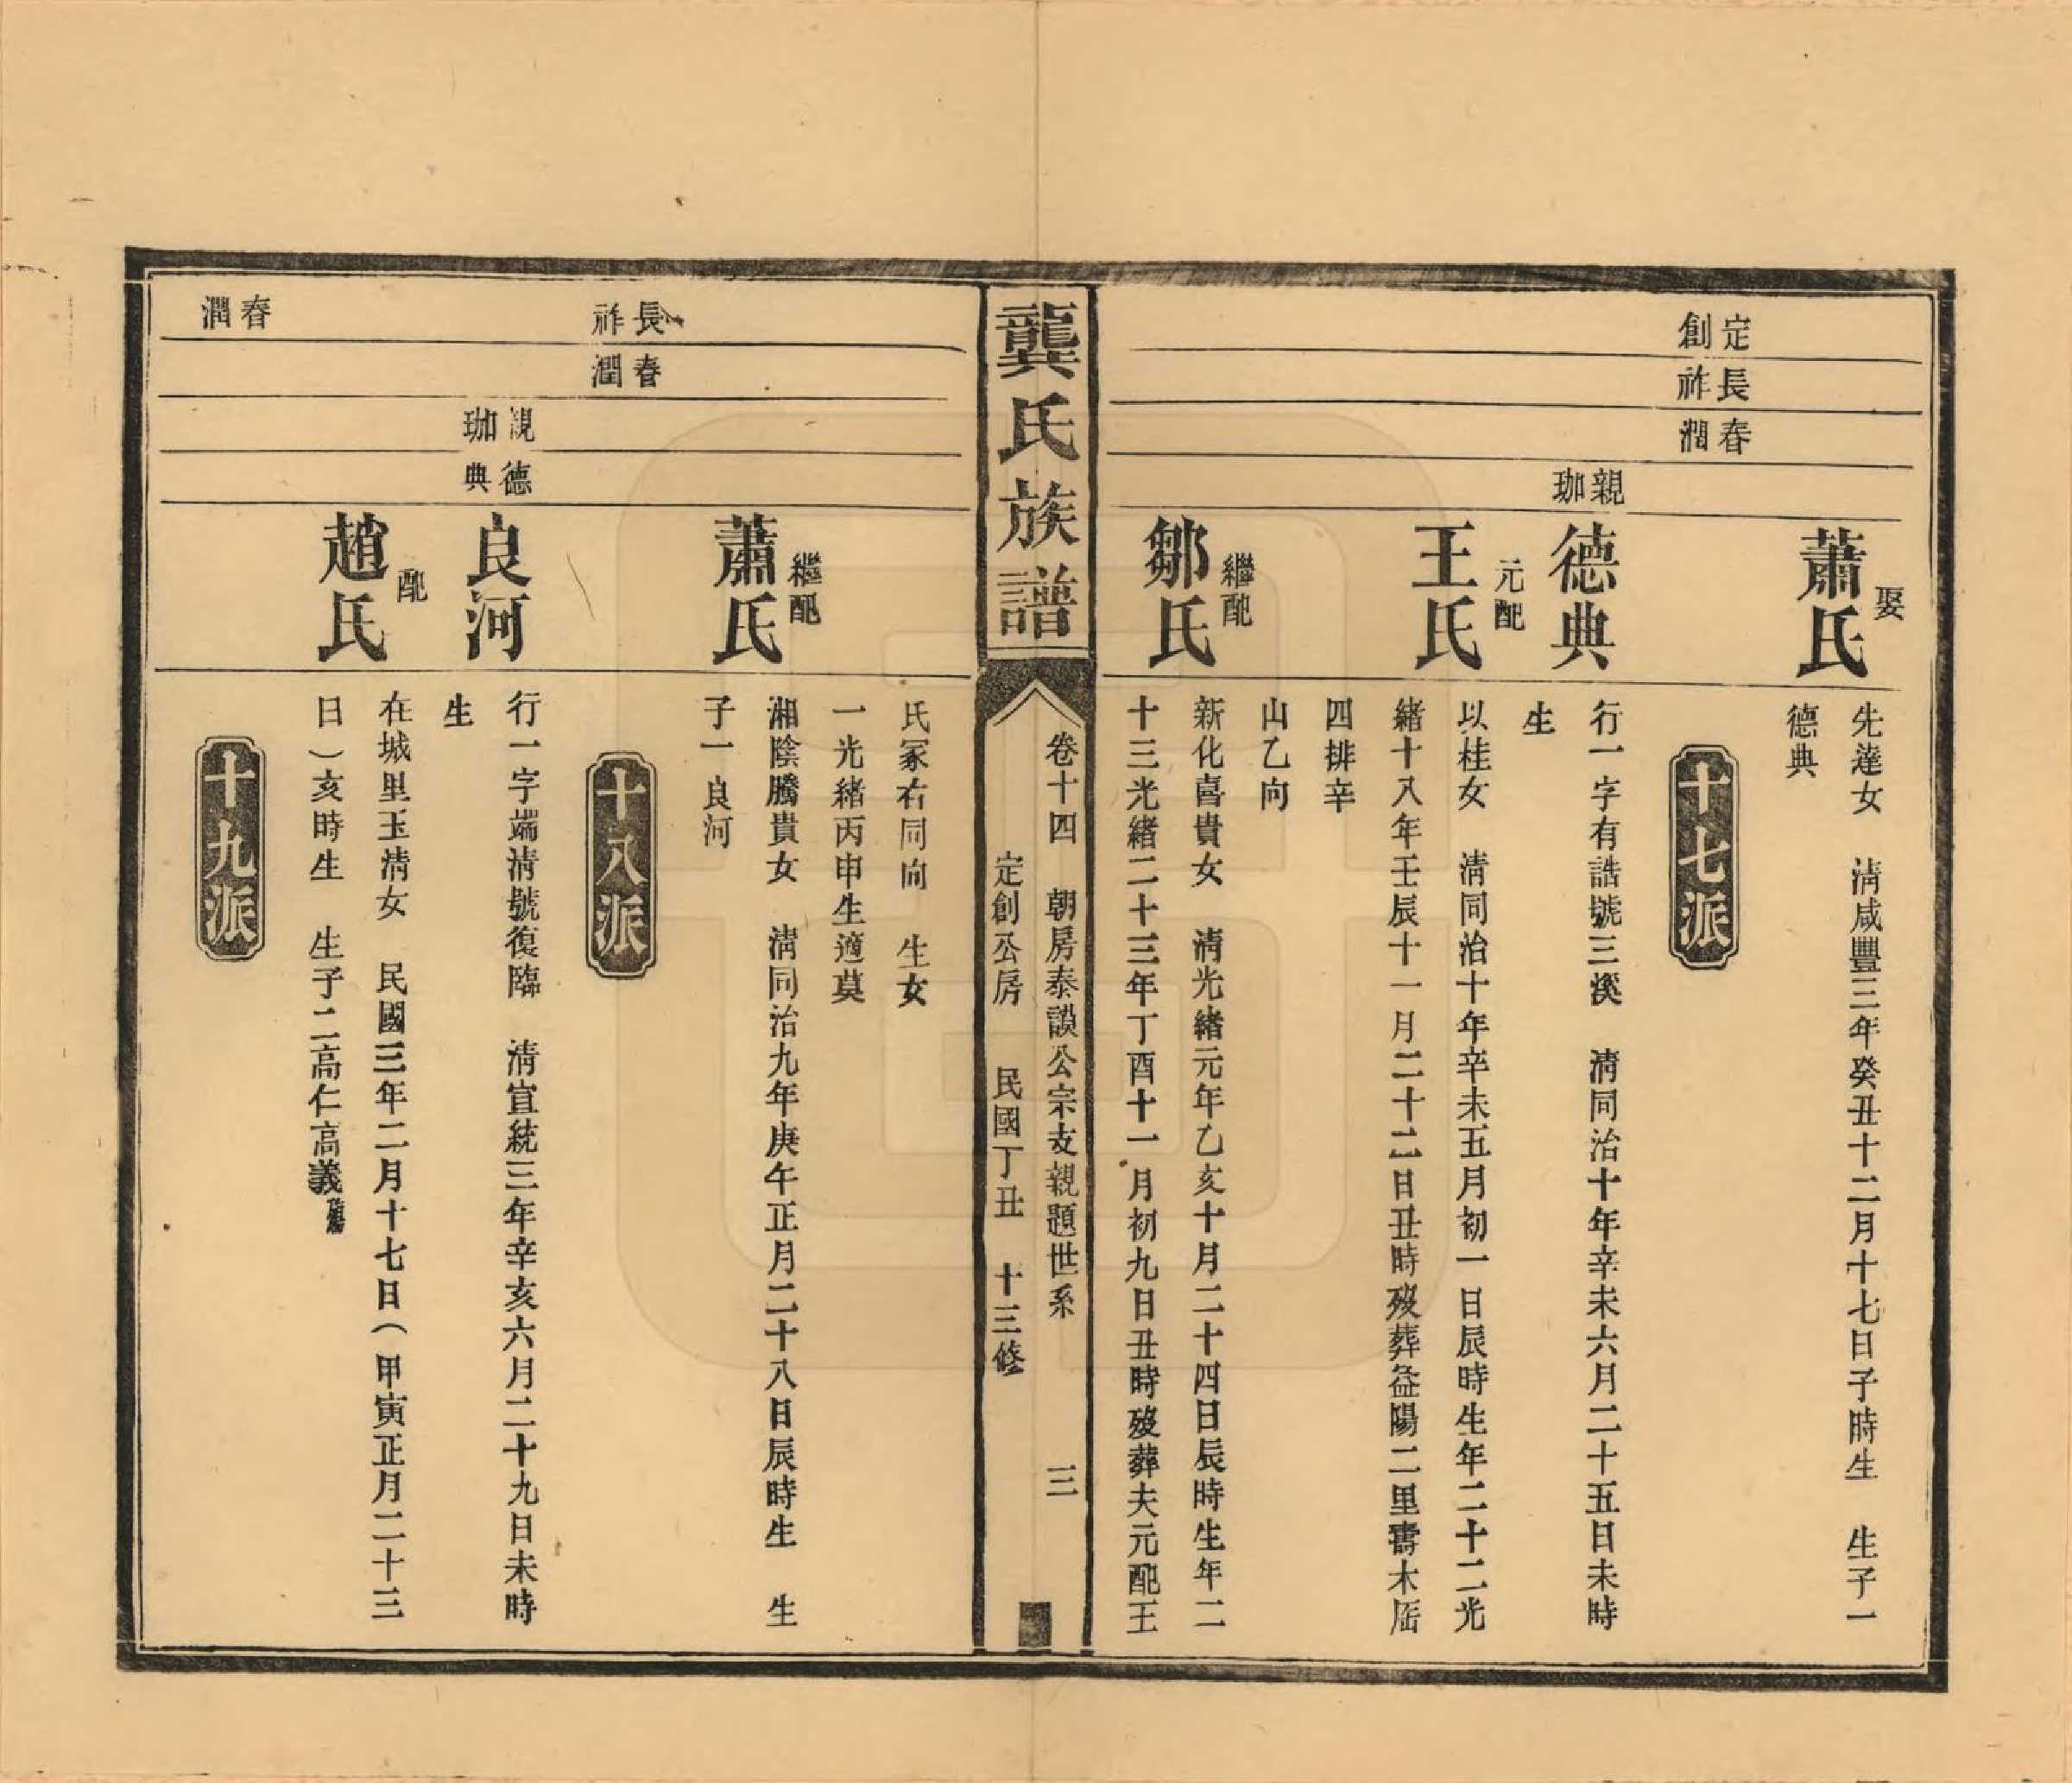 娶
蕭氏
先達女　清咸豐三年癸丑十二月十七日子時生　生子一
德典
定創
長祚
春潤
十七派
親珈
德典
行一字有誥號三溪　清同治十年辛未六月二十五日未時
生
元配
王氏
以桂女　清同治十年辛未五月初一日辰時生年二十二光
緒十八年壬辰十一月二十二日丑時歿葬益陽二里壽木
四排辛
山乙向
繼配
鄒氏
新化喜貴女　清光緒元年乙亥十月二十四日辰時生年二
十三光緒二十三年丁酉十一月初九日丑時歿葬夫元配王
龔氏族譜
卷十四　朝房泰謨公宗支親題世系　三
定創公房　民國丁丑　十三修
氏冢右同向　生女
一光緒丙申生適莫
繼配
蕭氏
湘陰騰貴女　清同治九年庚午正月二十八日辰時生　生
子一良河
長祚
春潤
十八派
親珈
德典
良河
行一字端清號復臨　清宣統三年辛亥六月二十九日未時
生
配
趙氏
在城里玉清女　民國三年二月十七日（甲寅正月二十三
日）亥時生　生子二高仁高義
春潤
十九派